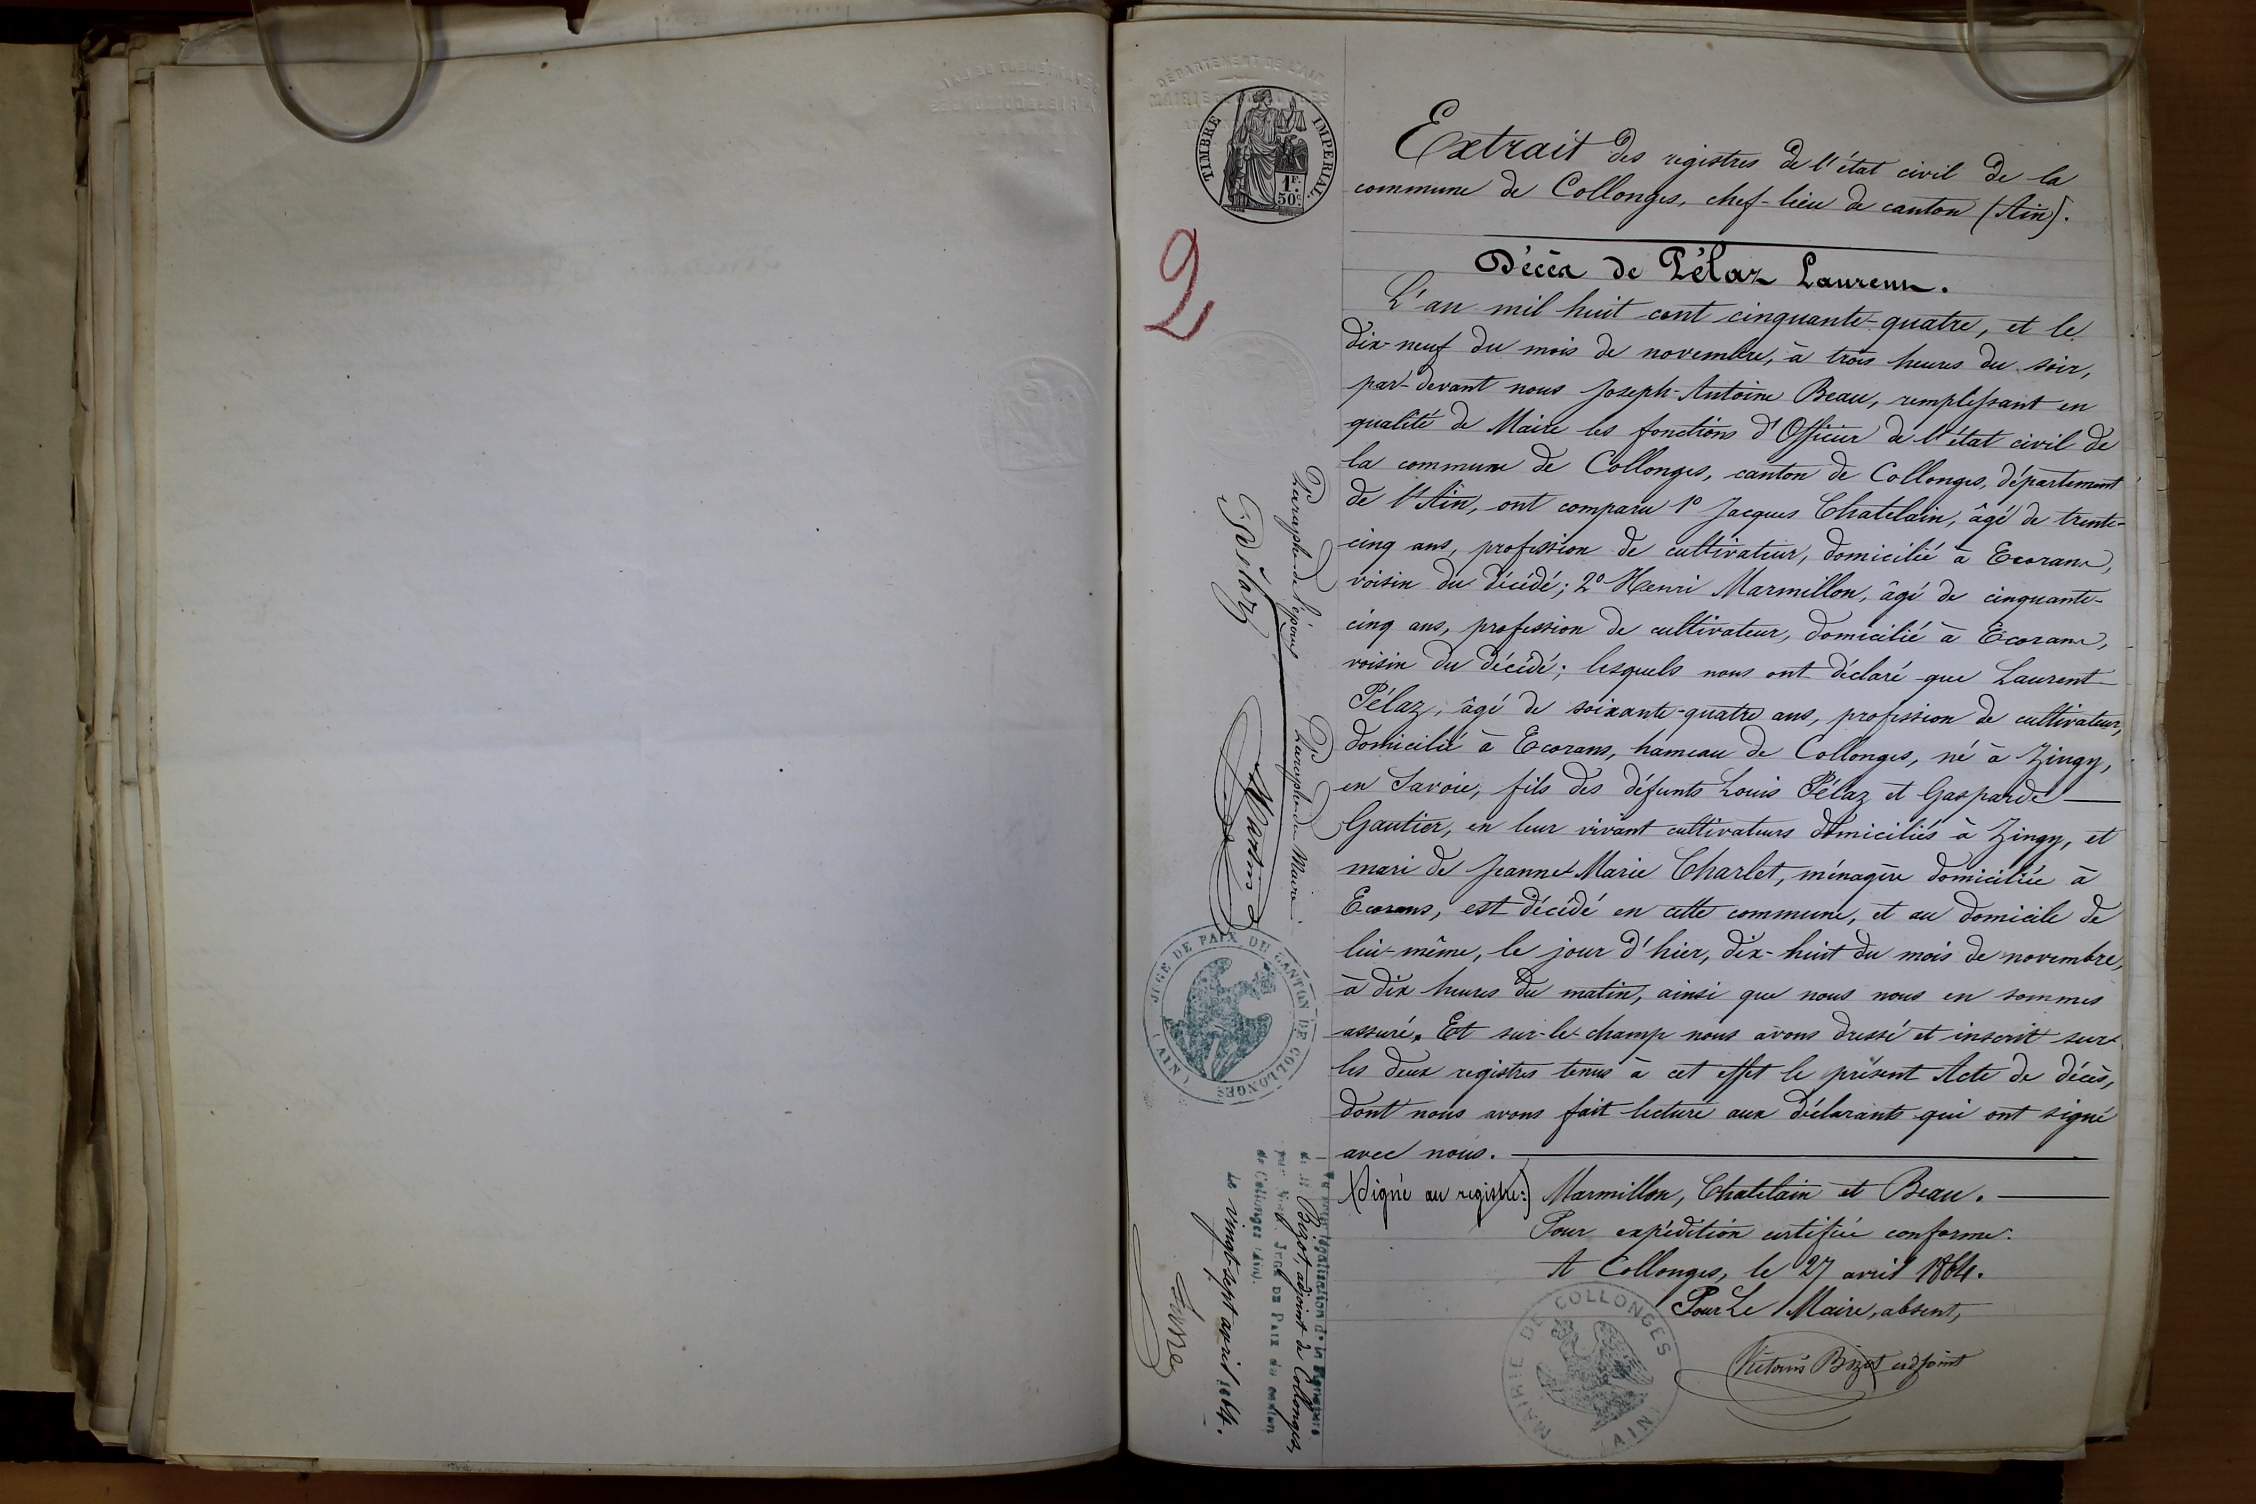 DÉPARTEMENT DE L'AIN
TIMBRE IMPERIAL.
1F.
50c.
2
Extrait des registres de l'état civil de la
commune de Collonges, chef-lieu de canton (Ain).
Décès de Pélaz Laurent.
L'an mil huit cent cinquante-quatre, et le
dix-neuf du mois de novembre, à trois heures du soir,
par-devant nous Joseph-Antoine Beau, remplissant en
qualité de Maire les fonctions d'Officier de l'état civil de
la commune de Collonges, canton de Collonges, département
de l'Ain, ont comparu 1° Jacques Chatelain, âgé de trente-
cinq ans, profession de cultivateur, domicilié à Ecorans,
voisin du décédé; 2° Henri Marmillon, âgé de cinquante-
cinq ans, profession de cultivateur, domicilié à Ecorans,
voisin du décédé; lesquels nous ont déclaré que Laurent
Pélaz, âgé de soixante-quatre ans, profession de cultivateur,
domicilié à Ecorans, hameau de Collonges, né à Zingy,
en Savoie, fils des défunts Louis Pélaz et Gasparde
Gautier, en leur vivant cultivateurs domiciliés à Zingy, et
mari de Jeanne-Marie Charlet, ménagère domiciliée à
Ecorans, est décédé en cette commune, et au domicile de
lui-même, le jour d'hier, dix-huit du mois de novembre,
à dix heures du matin, ainsi que nous nous en sommes
assuré. Et sur-le-champ nous avons dressé et inscrit sur
les deux registres tenus à cet effet le présent Acte de décès,
dont nous avons fait lecture aux déclarants qui ont signé
avec nous.
(Signé au registre:) Marmillon, Chatelain et Beau.
Pour expédition certifiée conforme.
A Collonges, le 27 avril 1864.
Pour Le Maire, absent,
Bizot adjoint
MAIRIE DE COLLONGES (AIN)
Paraphe de l'époux
Pélaz
Paraphe du Maire
JUGE DE PAIX DU CANTON DE COLLONGES (AIN)
Vu pour légalisation de la signature
de M Bizot, adjoint de Collonges,
par Nous Juge de Paix du canton
de Collonges (Ain).
Le vingt-sept avril 1864.